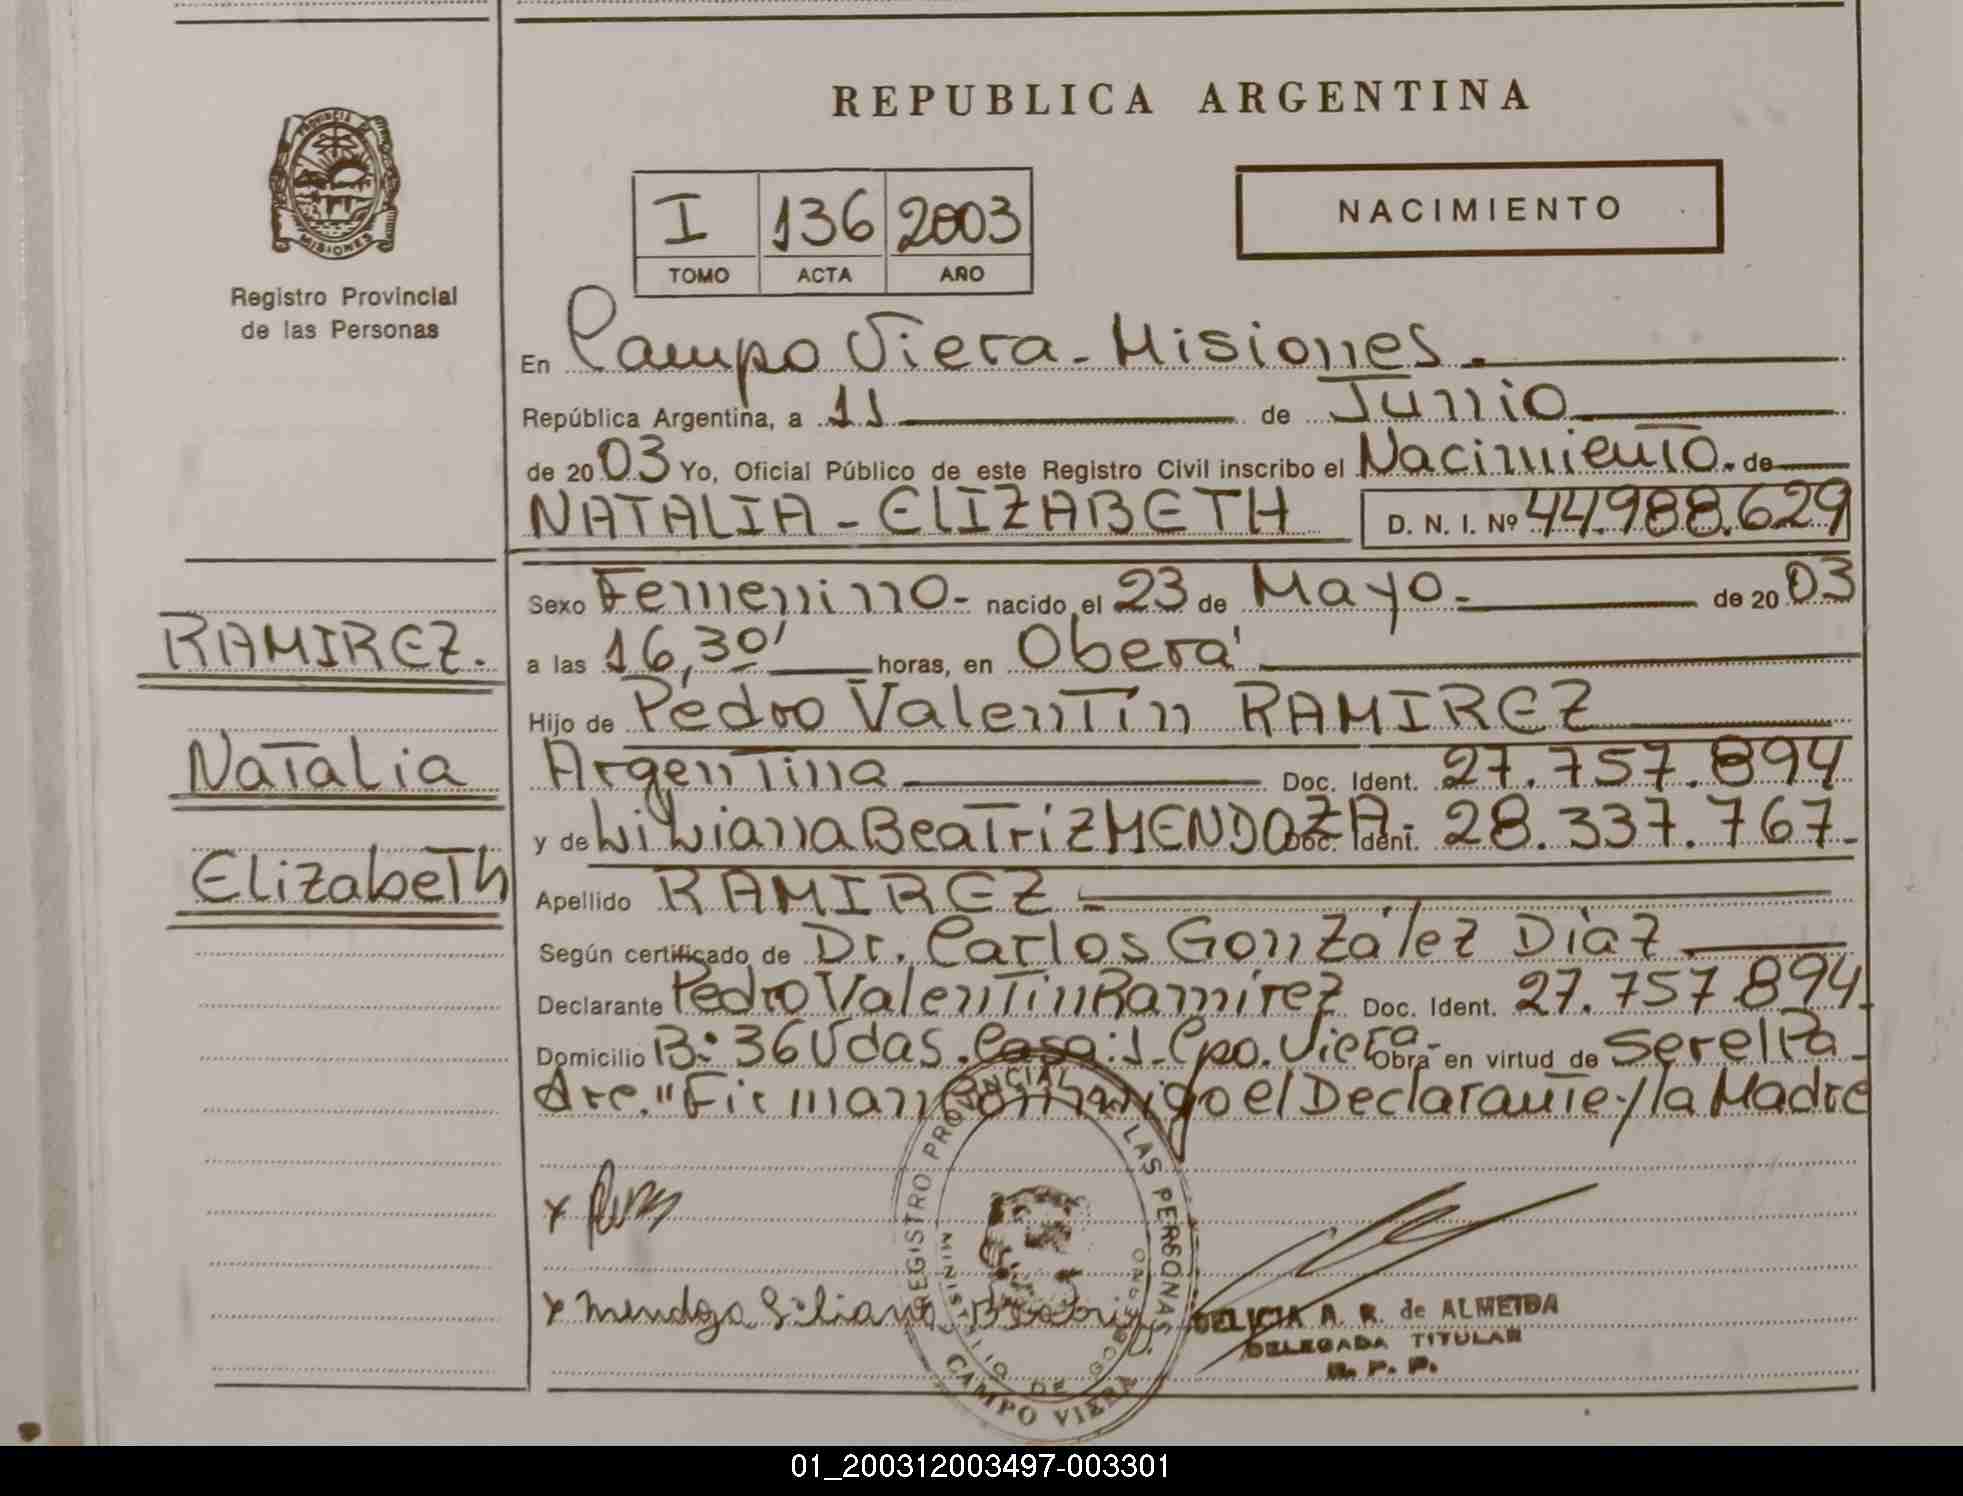 REPUBLICA ARGENTINA
PROVINCIA DE
MISIONES
Registro Provincial
de las Personas
I 136 2003
TOMO ACTA AÑO
NACIMIENTO
En Campo Viera - Misiones.
República Argentina, a 11 de Junio
de 2003 Yo, Oficial Público de este Registro Civil inscribo el Nacimiento. de
NATALIA - ELIZABETH D. N. I. Nº 44.988.629
Sexo Femenino - nacido el 23 de Mayo - de 2003
a las 16,30' horas, en Oberá
Hijo de Pedro Valentín RAMIREZ
Argentina Doc. Ident. 27.757.894
y de Liliana Beatriz MENDOZA - Doc. Ident. 28.337.767 -
Apellido RAMIREZ -
Según certificado de Dr. Carlos González Díaz
Declarante Pedro Valentín Ramírez Doc. Ident. 27.757.894.
Domicilio B: 36 Vdas. Casa: 1 - Cpo. Viera - Obra en virtud de ser el Pa-
dre." Firman conmigo el Declarante y la Madre
RAMIREZ.
Natalia
Elizabeth
x
x Mendoza Liliana Beatriz
REGISTRO PROVINCIAL DE LAS PERSONAS
MINISTERIO DE GOBIERNO
CAMPO VIERA
DELICIA A. R. de ALMEIDA
DELEGADA TITULAR
R. P. P.
01_200312003497-003301